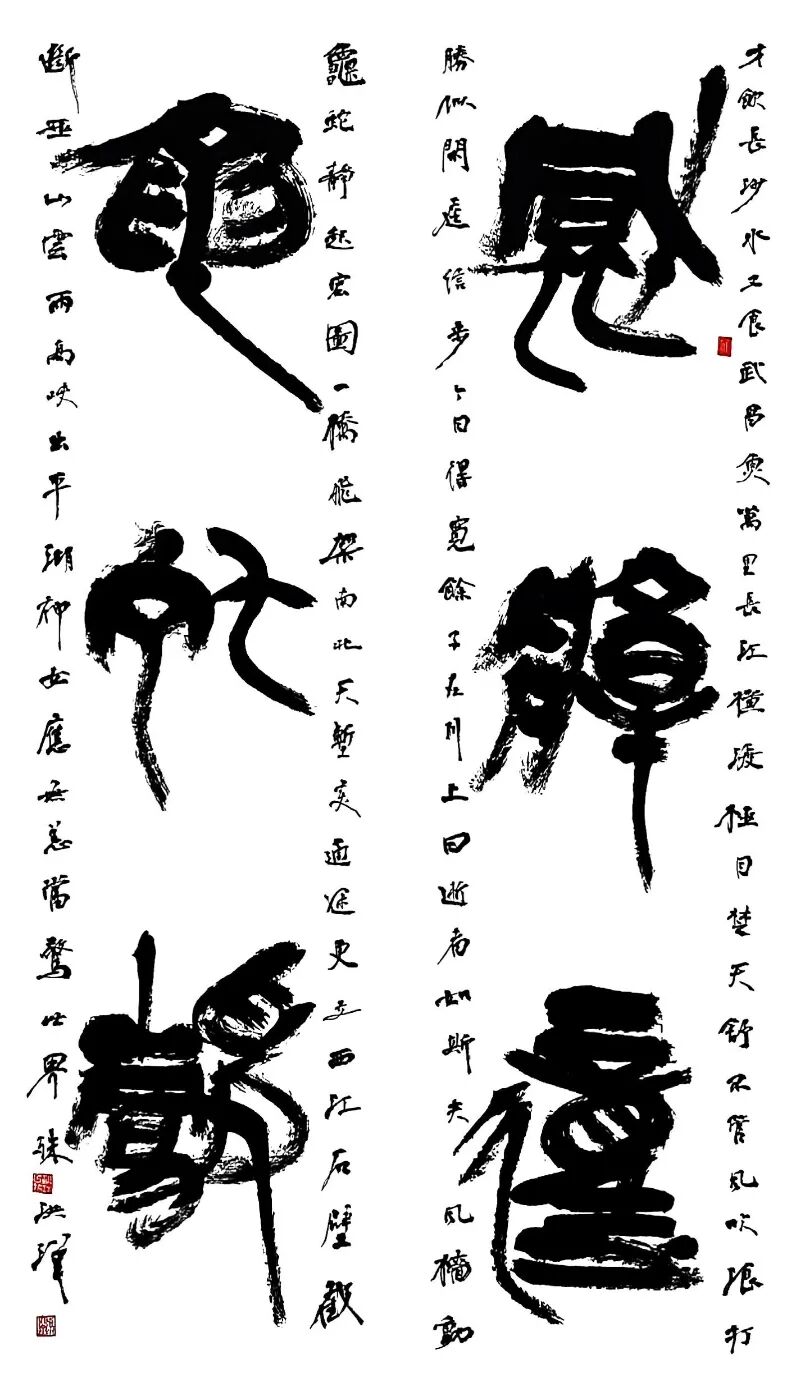 才飲長沙水又食武昌魚萬里長江橫渡極目楚天舒不管風吹浪打
勝似閒庭信步今日得寬餘子在川上曰逝者如斯夫風檣動
龜蛇靜起宏圖一橋飛架南北天塹變通途更立西江石壁截
龜
斷巫山雲雨高峽出平湖神女應無恙當驚世界殊